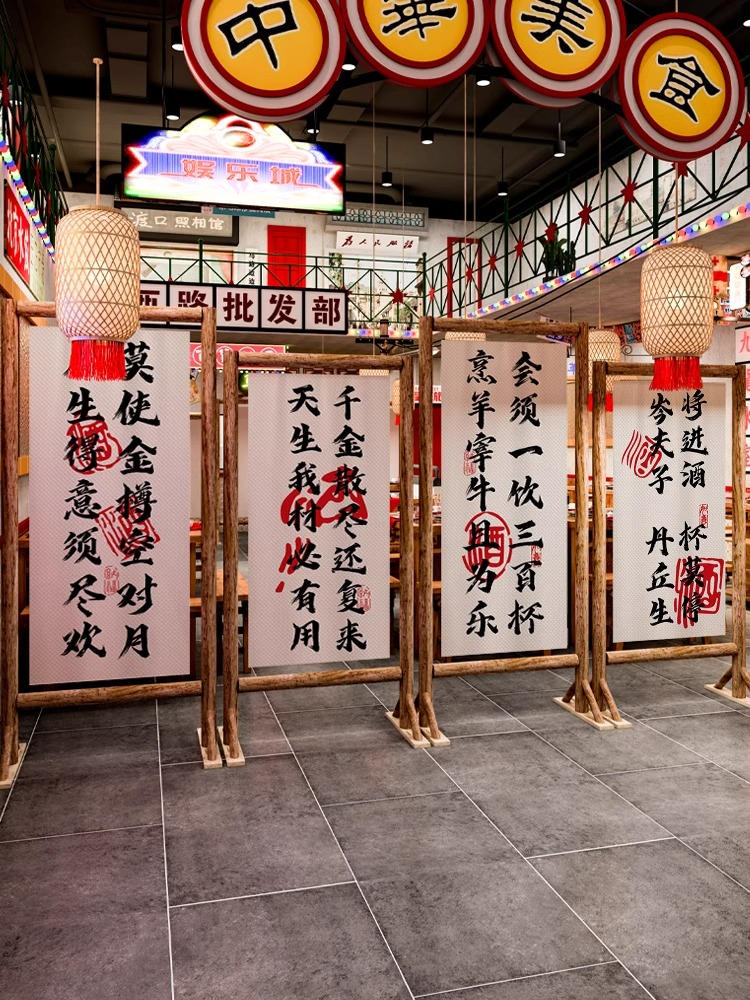 中華美食
娱乐城
渡口照相馆
为人民服务
西路批发部
生得意须尽欢
莫使金樽空对月
天生我材必有用
千金散尽还复来
烹羊宰牛且为乐
会须一饮三百杯
岑夫子 丹丘生
将进酒 杯莫停